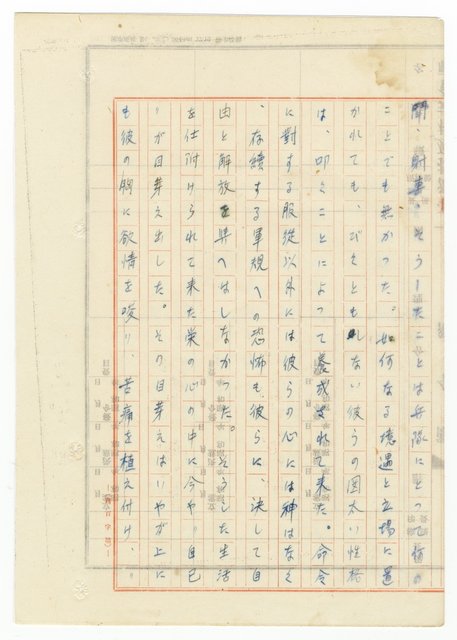 聞、射事、そうしたことは兵隊にとって何の
ことでも無かった。如何なる境遇と立場に置
かれても、びくともしない彼らの図太い性格
は、叩くことによって養成されて来た。命令
に對する服從以外には彼らの心には神はなく
、存續する軍規への恐怖も彼らに、決して自
由と解放を與へはしなかった。そうした生活
を仕附けられて来た栄の心の中に今や、自己
が目芽え出した。その目芽えはいやが上に
も彼の胸に欲情を唆り、苦痛を植え付け、